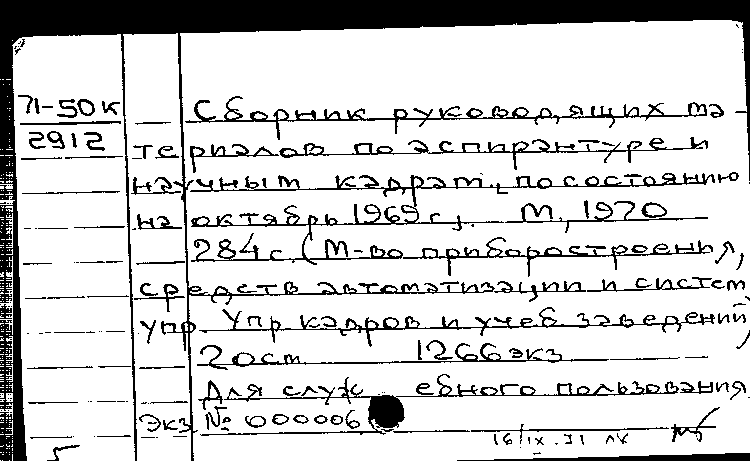 71-50к
2912
Сборник руководящих ма-
териалов по аспирантуре и
научным кадрам, по состоянию
на октябрь 1969 г.). М., 1970
284 с. (М-во приборостроения,
средств автоматизации и систем
упр. Упр кадров и учеб. заведений)
20 ст 1266 экз
Для служебного пользования
экз № 000006
16/IX.71